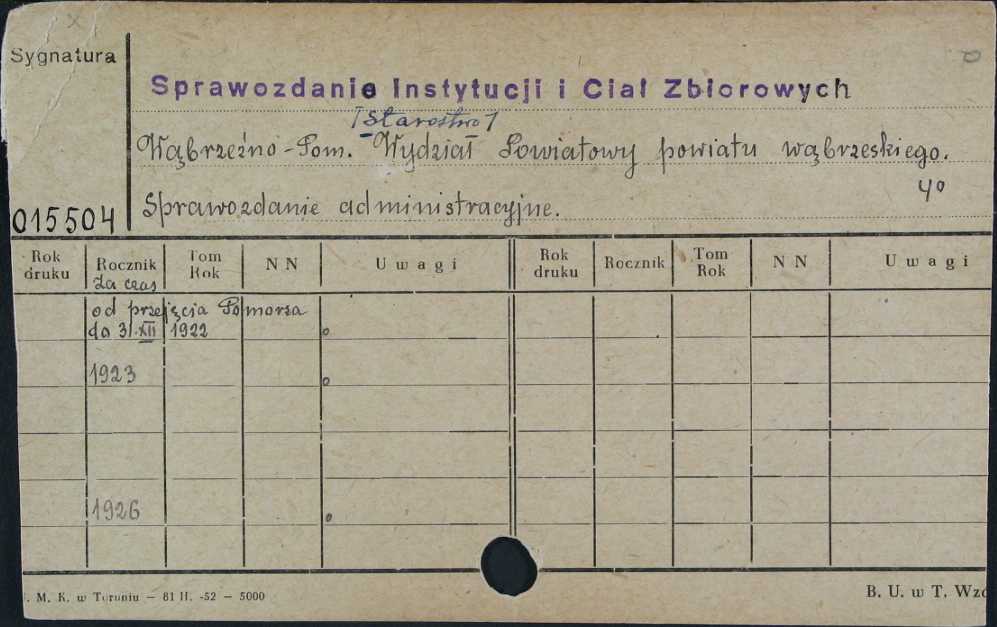 Sygnatura
Sprawozdanie Instytucji i Ciał Zbiorowych
/Starostwo/
Wąbrzeźno-Pom. Wydział Powiatowy powiatu wąbrzeskiego.
4o
015504 Sprawozdanie administracyjne.
Rok druku Rocznik Tom Rok NN Uwagi Rok druku Rocznik Tom Rok NN Uwagi
Za czas
od przejęcia Pomorza
do 31.XII 1922 o
1923 o
1926 o
M. K. w Toruniu — 81 II. -52 — 5000 B. U. w T.